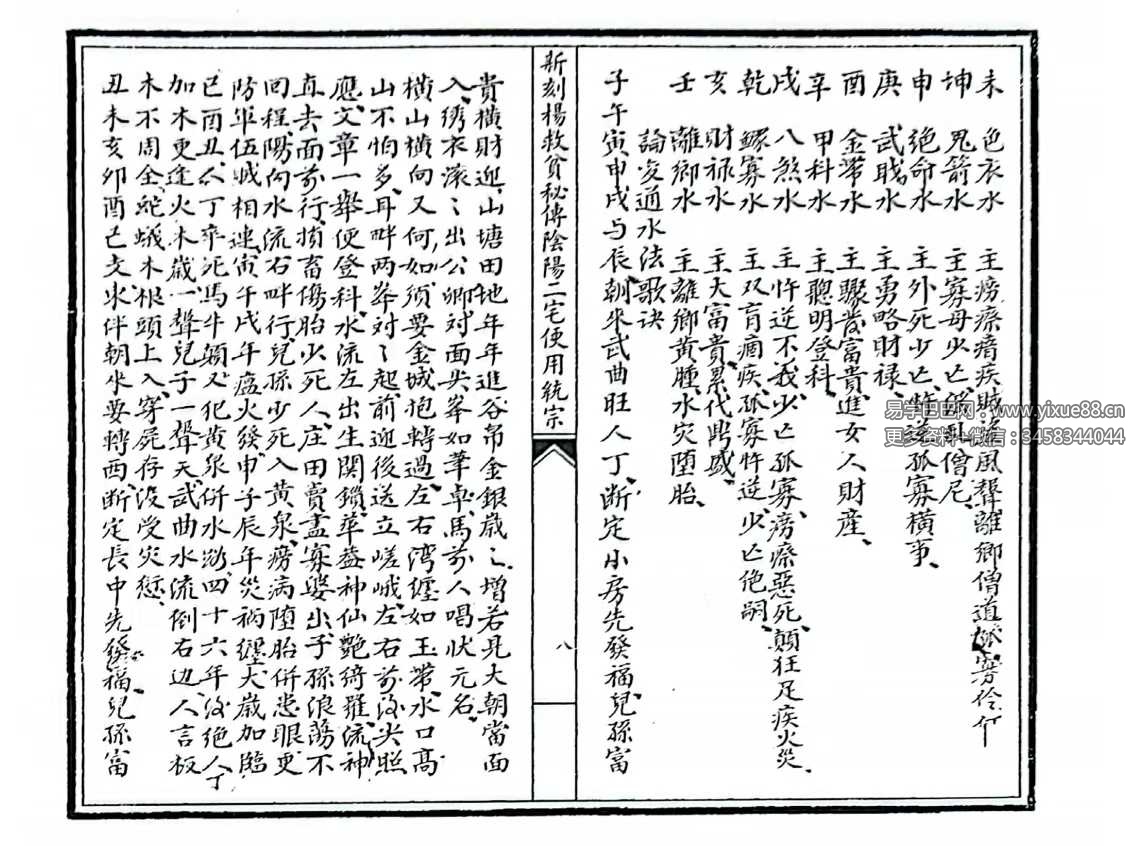 未 色衣水 主癆瘵瘖疾城盗風聲離鄉僧道孤寡伶仃
坤 鬼箭水 主寡母少亡僧尼
申 绝命水 主外死少亡忤逆孤寡横事
庚 武職水 主勇略財禄
酉 金帶水 主驟發富貴進女人財産
辛 甲科水 主聰明登科
戌 八煞水 主忤逆不義少亡孤寡癆瘵惡死顛狂足疾火災
乾 鰥寡水 主双盲痼疾孤寡忤逆少亡绝嗣
亥 財禄水 主大富貴累代興盛
壬 離鄉水 主離鄉黄腫水灾墮胎
論变通水法歌诀
子午寅申戌与辰朝來武曲旺人丁断定小房先發福兒孫富
新刻楊救貧秘傳陰陽二宅便用統宗
八
貴横財迎山塘田地年年進谷帛金銀歲〻增若見大朝當面
入绣衣滚〻出公卿对面尖峯如筆卓馬前人唱状元名
横山横向又何如须要金城抱轉過左右湾纏如玉帶水口髙
山不怕多耳畔两峯对〻起前迎後送立嵯峨左右前後尖照
應文章一舉便登科水流左出生関鎖華蓋神仙艷綺羅流神
直去面前行損畜傷胎少死人庄田賣盡寡婆出子孫浪蕩不
回程陽向水流右畔行兒孫少死入黄泉癆病墮胎併患眼更
防軍伍贼相連寅午戌年瘟火發申子辰年災祸纏太歲加臨
巳酉丑人丁卒死馬牛顛又犯黄泉併水煞四十六年後绝人丁
加木更逢火木歲一聲兒子一聲天武曲水流倒右边人言板
木不周全蛇蟻木根頭上入穿屍存没受灾愆
丑未亥卯酉巳支水伴朝來要轉西断定長中先發福兒孫富
易学巴巴网：www.yixue88.cn
更多资料+微信：3458344044